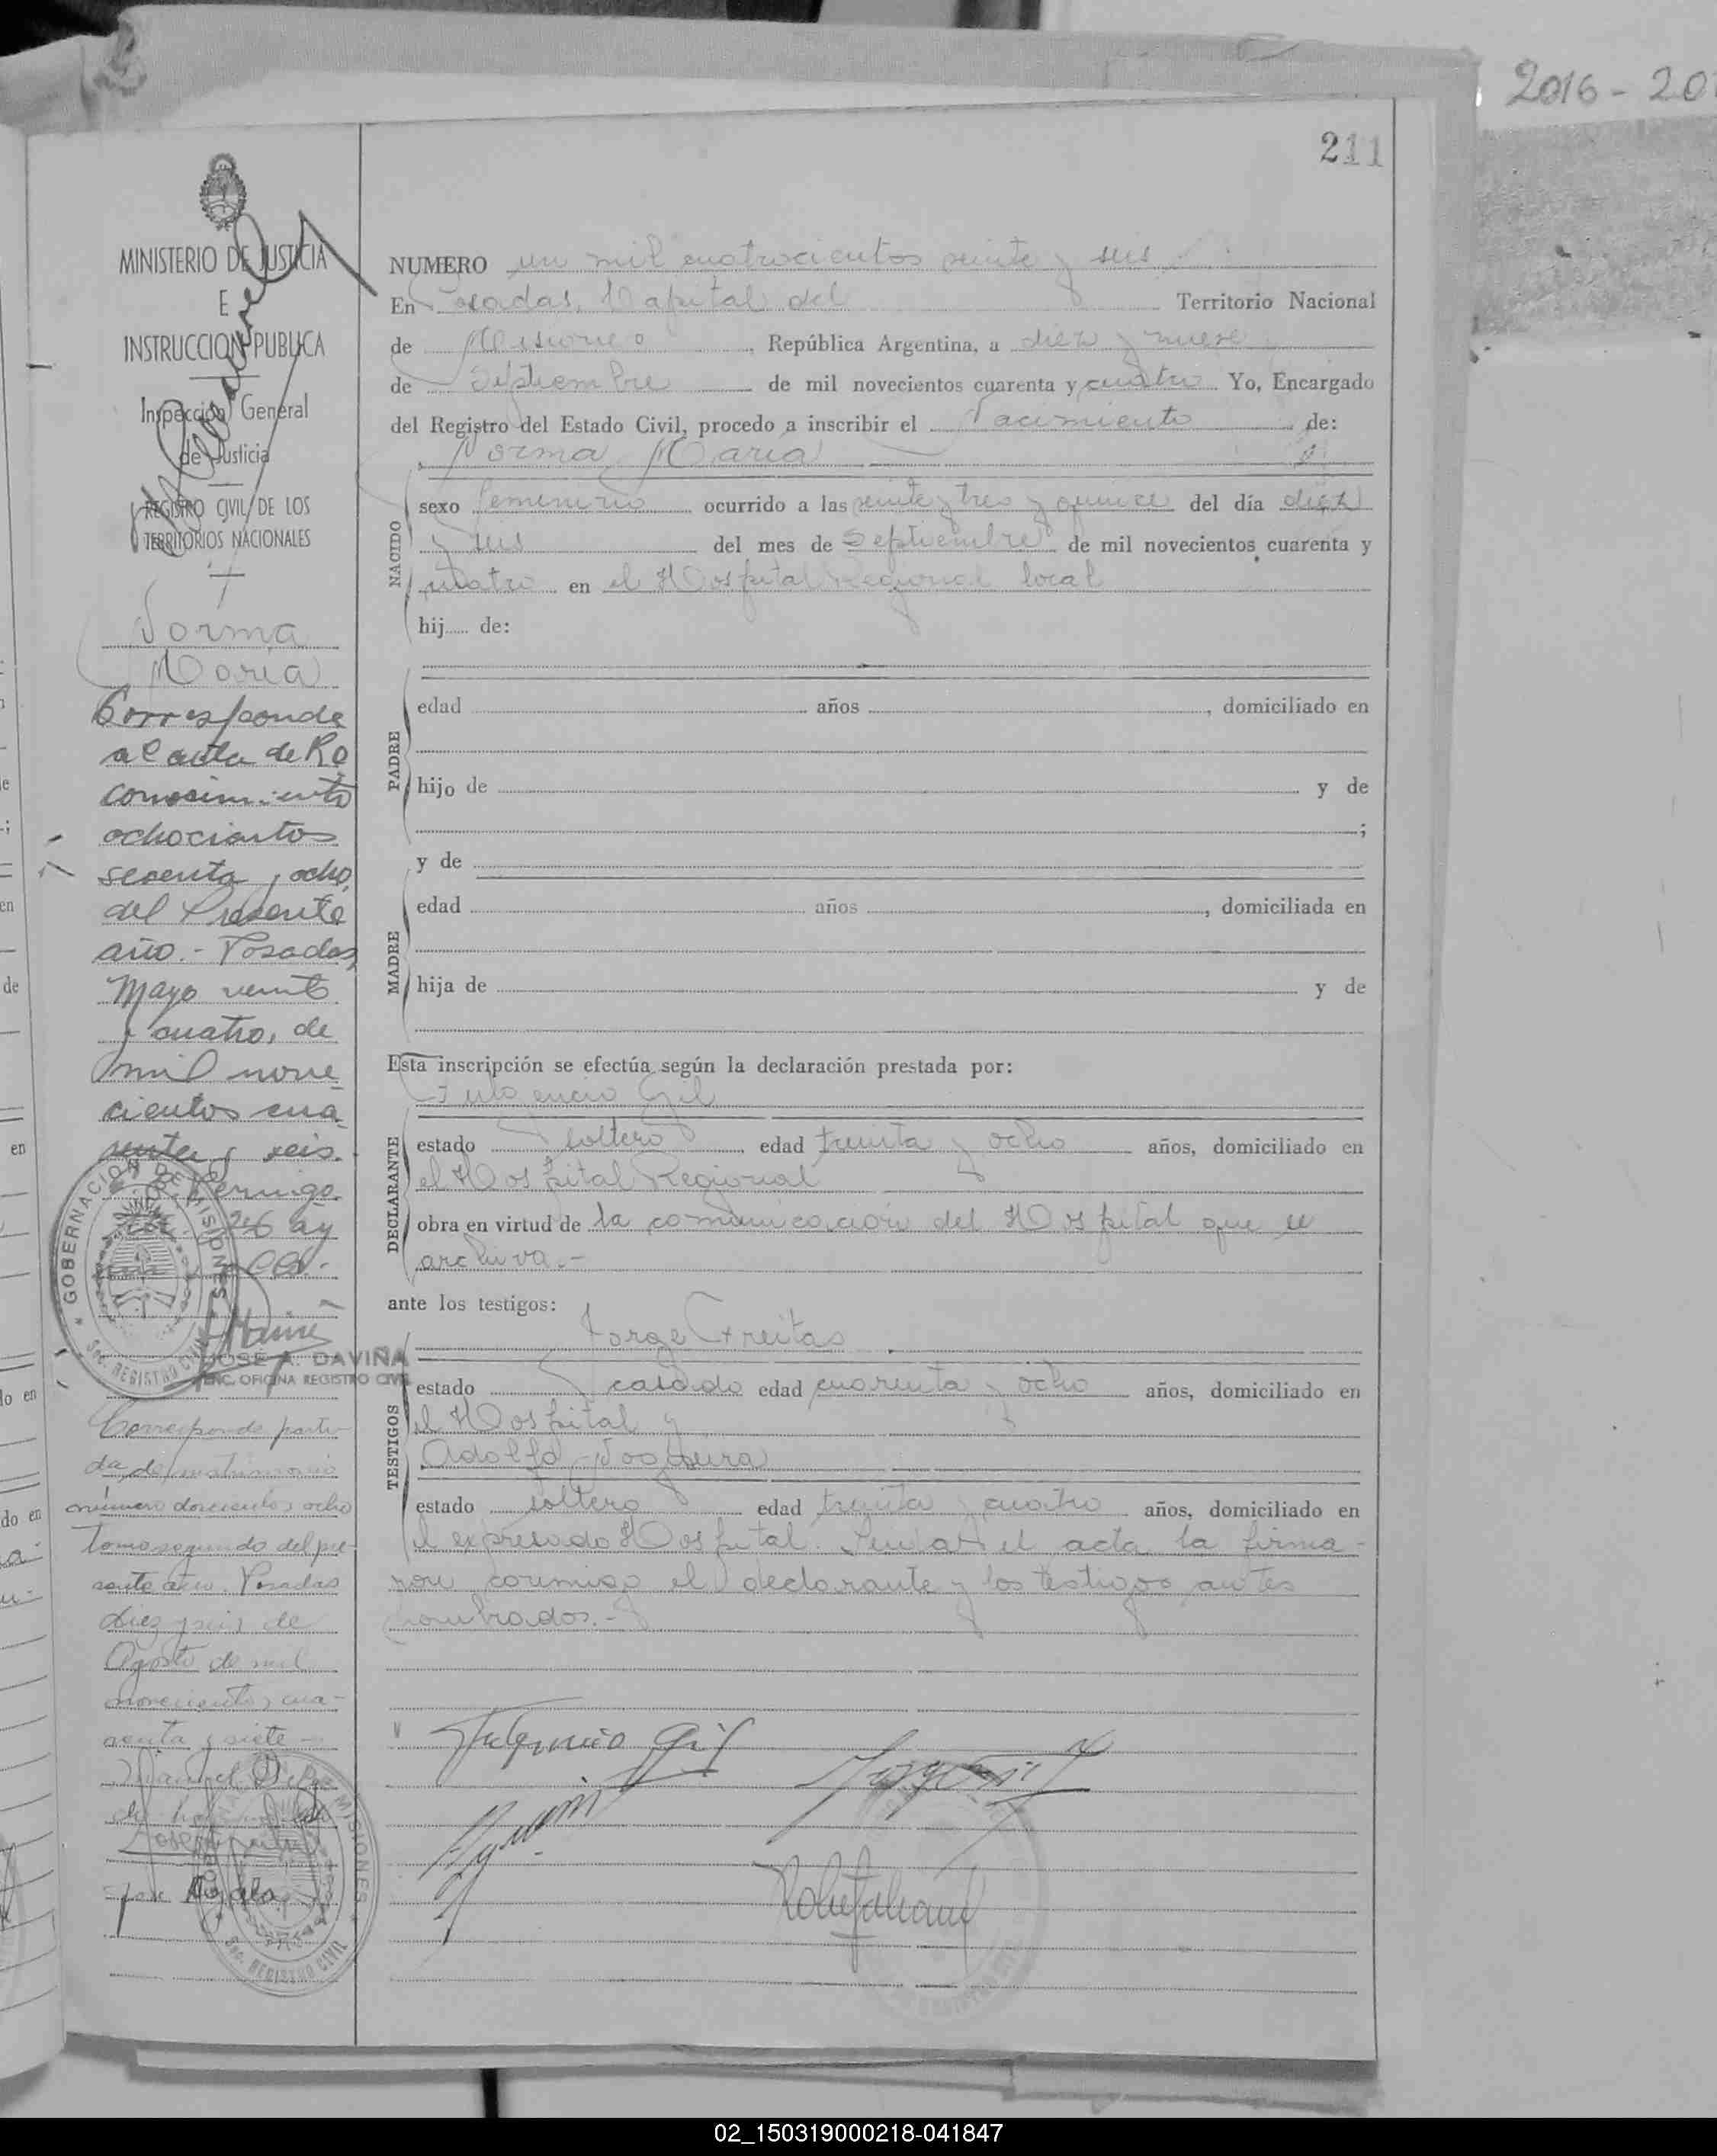 2016-20
211
MINISTERIO DE JUSTICIA
E
INSTRUCCION PUBLICA
Inspección General
de Justicia
REGISTRO CIVIL DE LOS
TERRITORIOS NACIONALES
Norma
María
Corresponde
al acta de Re
conocimiento
ochocientos
sesenta y ocho,
del Presente
año.- Posadas,
Mayo veinte
y cuatro, de
mil nove
cientos cua
renta y seis.
GOBERNACION DE MISIONES
Sec. REGISTRO CIVIL
JOSÉ A. DAVIÑA
ENC. OFICINA REGISTRO CIVIL
Corresponde parti-
da de matrimonio
número doscientos ocho
tomo segundo del pre-
sente año. Posadas
diez y seis de
Agosto de mil
novecientos cua-
renta y siete -
MISIONES
Sec. REGISTRO CIVIL
NUMERO un mil cuatrocientos veinte y seis
En Posadas, Capital del Territorio Nacional
de Misiones, República Argentina, a diez y nueve
de Septiembre de mil novecientos cuarenta y cuatro Yo, Encargado
del Registro del Estado Civil, procedo a inscribir el Nacimiento de:
Norma María
NACIDO
sexo femenino ocurrido a las veinte y tres y quince del día diez
y seis del mes de Septiembre de mil novecientos cuarenta y
cuatro en el Hospital Regional local
hij de:
PADRE
edad años , domiciliado en
hijo de y de
;
y de
MADRE
edad años , domiciliada en
hija de y de
Esta inscripción se efectúa según la declaración prestada por:
Fulgencio Gil
DECLARANTE
estado soltero, edad treinta y ocho años, domiciliado en
el Hospital Regional
obra en virtud de la comunicación del Hospital que se
archiva.-
ante los testigos:
Jorge Freitas
TESTIGOS
estado casado edad cuarenta y ocho años, domiciliado en
el Hospital y
Adolfo Noguera
estado soltero edad treinta y cuatro años, domiciliado en
el expresado Hospital. Leída el acta la firma-
ron conmigo el declarante y los testigos antes
nombrados.-
Fulgencio Gil
02_150319000218-041847